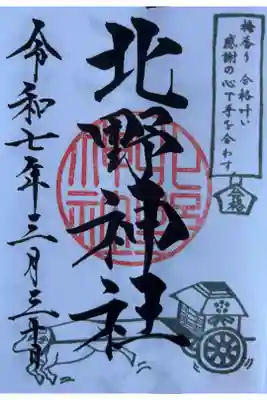 梅香り 合格叶い
感謝の心で手を合わす
合格
北野神社
北野神社
令和七年三月三十日